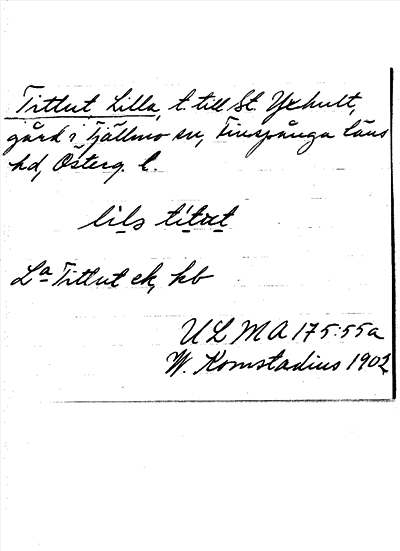 Tittut, Lilla, t. till St. Yxhult,
gård i Tjällmo sn, Finspånga läns
hd, Österg. l.
lils titut
La Tittut ek, hb
ULMA 175:55a
W. Komstadius 1902